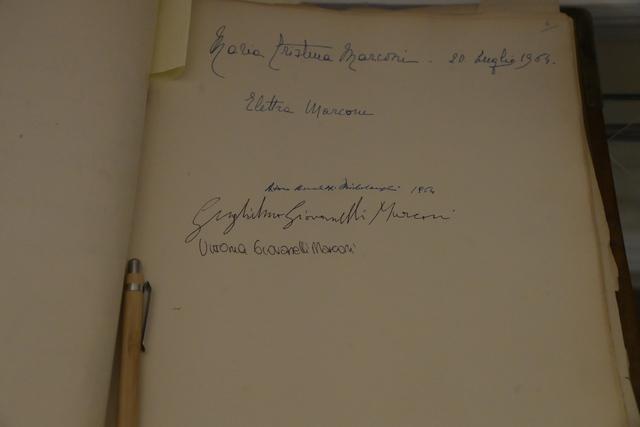 Maria Cristina Marconi. 20 Luglio 1964.
Elettra Marconi
1964
Guglielmo Giovanelli Marconi
Vittoria Giovanelli Marconi